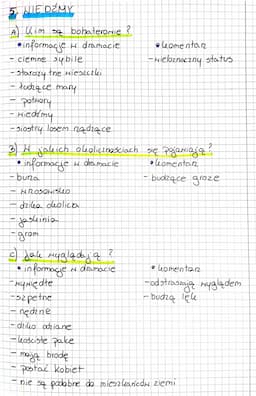 5. WIEDŹMY
A) Kim są bohaterowie?
• informacje w dramacie • komentarz
- ciemne sybile - nieoznaczny status
- starożytne wieszczki
- łudzące mary
- potwory
- wiedźmy
- siostry losem rządzące
B) W jakich okolicznościach się pojawiają?
• informacje w dramacie • komentarz
- burza - budzące grozę
- wrzosowisko
- dzika okolica
- jaskinia
- grom
C) Jak wyglądają?
• informacje w dramacie • komentarz
- wywiędłe - odstraszają wyglądem
- szpetne - budzą lęk
- nędzne
- dziko odziane
- kościste palce
- mają brodę
- postać kobiet
- nie są podobne do mieszkańców ziemi